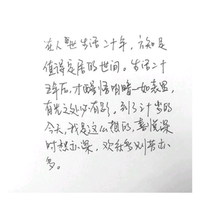 在人世生活二十年，方知是
值得安居的世间。生活二十
五年后，才醒悟明暗一如表里，
有光之处必有影。到了三十岁的
今天，我是这么想的，喜悦深
时愁亦深，欢和多则苦亦
多。